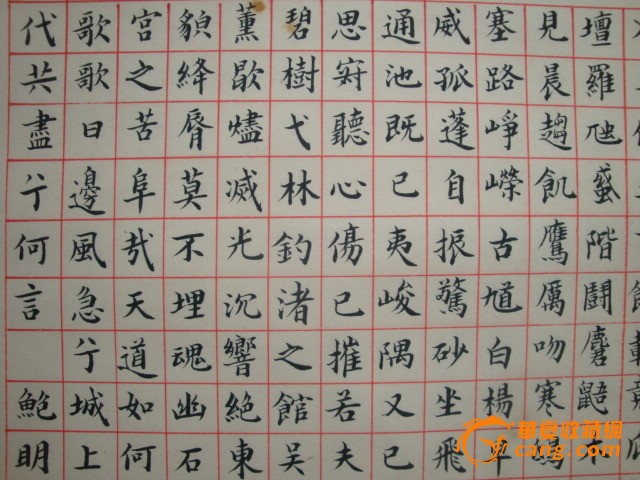 壇羅虺蜮階鬪麏鼯
見晨趨飢鷹厲吻寒鴟
塞路崢嶸古馗白楊早
威孤蓬自振驚砂坐飛
通池既已夷峻隅又已
思寂聽心傷已摧若夫
碧樹弋林釣渚之館吳
薰歇燼滅光沉響絕東
貌絳脣莫不埋魂幽石
宮之苦辛哉天道如何
歌歌曰邊風急兮城上
代共盡兮何言 鮑明
華夏收藏網
cang.com